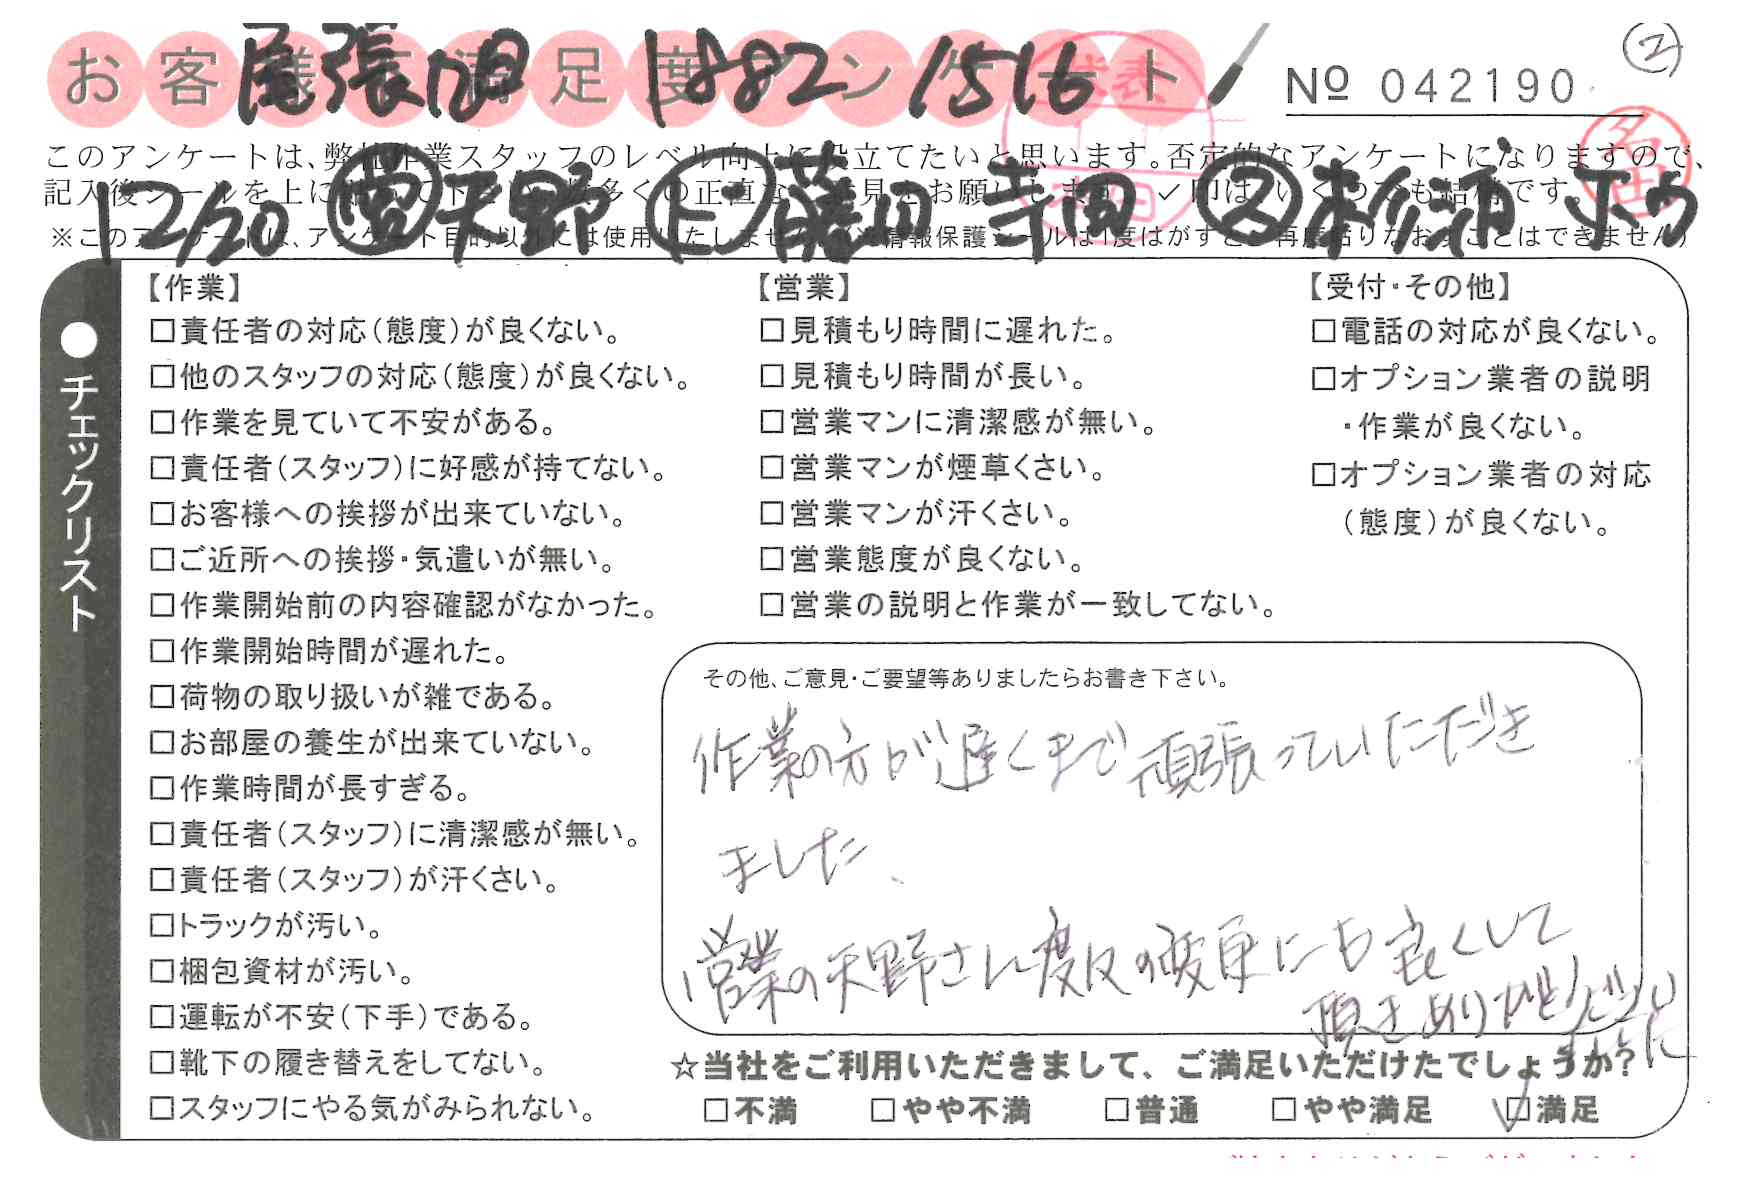 お客様満足度アンケート
尾張旭 1882 1516
№ 042190
②
このアンケートは、弊社作業スタッフのレベル向上に役立てたいと思います。否定的なアンケートになりますので、
記入後シールを上に貼って下さい。数多くの正直なご意見をお願いします。✓印はいくつでも結構です。
12/20 営 天野 ト 藤田 寺田 ス 杉浦
※このアンケートは、アンケート目的以外には使用いたしません。(情報保護シールは1度はがすと、再度貼りなおすことはできません)
●チェックリスト
【作業】
□責任者の対応(態度)が良くない。
□他のスタッフの対応(態度)が良くない。
□作業を見ていて不安がある。
□責任者(スタッフ)に好感が持てない。
□お客様への挨拶が出来ていない。
□ご近所への挨拶・気遣いが無い。
□作業開始前の内容確認がなかった。
□作業開始時間が遅れた。
□荷物の取り扱いが雑である。
□お部屋の養生が出来ていない。
□作業時間が長すぎる。
□責任者(スタッフ)に清潔感が無い。
□責任者(スタッフ)が汗くさい。
□トラックが汚い。
□梱包資材が汚い。
□運転が不安(下手)である。
□靴下の履き替えをしてない。
□スタッフにやる気がみられない。
【営業】
□見積もり時間に遅れた。
□見積もり時間が長い。
□営業マンに清潔感が無い。
□営業マンが煙草くさい。
□営業マンが汗くさい。
□営業態度が良くない。
□営業の説明と作業が一致してない。
【受付・その他】
□電話の対応が良くない。
□オプション業者の説明
・作業が良くない。
□オプション業者の対応
(態度)が良くない。
その他、ご意見・ご要望等ありましたらお書き下さい。
作業の方が遅くまで頑張っていただき
ました、
営業の天野さん度々の変更にも良くして
頂きありがとうござい
ました
☆当社をご利用いただきまして、ご満足いただけたでしょうか?
□不満 □やや不満 □普通 □やや満足 ☑満足